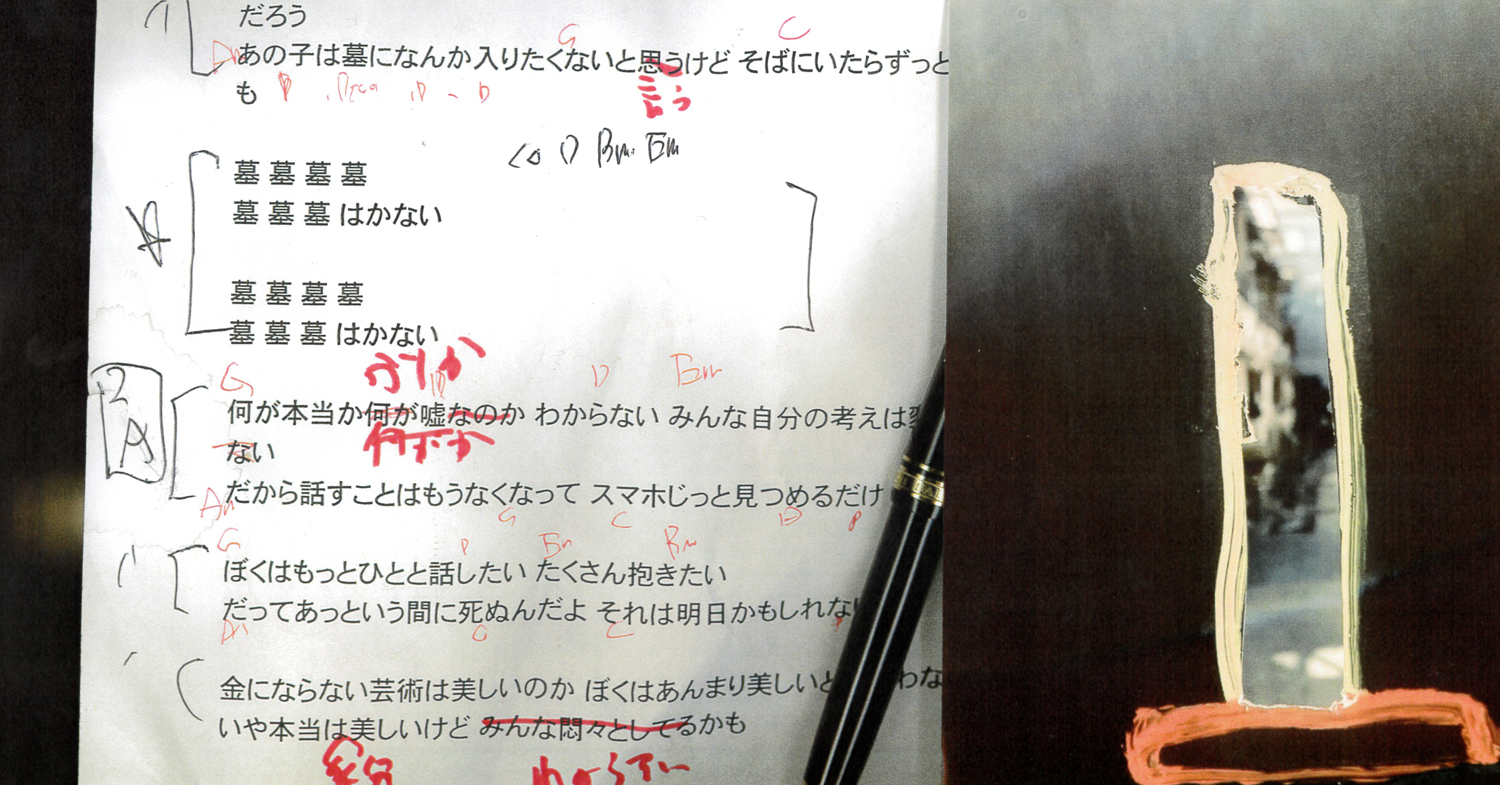 だろう
G C
Dm あの子は墓になんか入りたくないと思うけど そばにいたらずっと
も
言う
D Bm Em
墓 墓 墓 墓
墓 墓 墓 はかない
墓 墓 墓 墓
墓 墓 墓 はかない
2
A
G D Em
何が本当か何が嘘なのか わからない みんな自分の考えは
何が
ない
Am だから話すことはもうなくなって スマホじっと見つめるだけ
G C D
G D Em Bm
ぼくはもっとひとと話したい たくさん抱きたい
だってあっという間に死ぬんだよ それは明日かもしれな
Am G C
金にならない芸術は美しいのか ぼくはあんまり美しいと
いや本当は美しいけど みんな悶々としてるかも